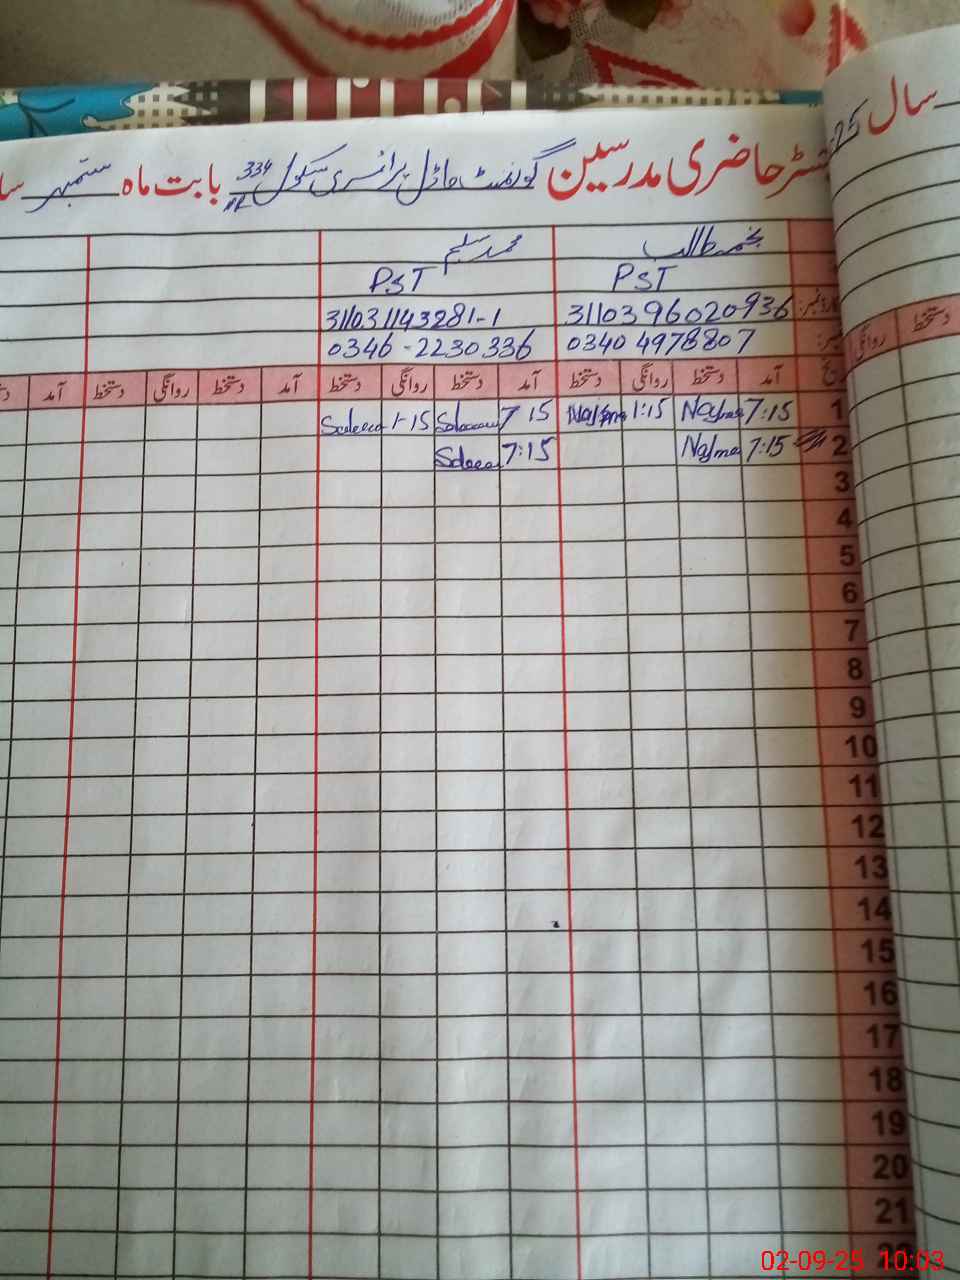 رجسٹر حاضری مدرسین گورنمنٹ ماڈل پرائمری سکول 334 بابت ماہ ستمبر سا
سال 25
نجمہ طالب محمد سلیم
PST PST
3110396020936 311031143281-1
0340 4978807 0346-2230336
آمد دستخط روانگی دستخط آمد دستخط روانگی دستخط آمد دستخط روانگی دستخط آمد
روانگی دستخط
1 7:15 Najma 1:15 Najma 7 15 1-15
2 7:15 Najma 7:15
3
4
5
6
7
8
9
10
11
12
13
14
15
16
17
18
19
20
21
22
02-09-25 10:03